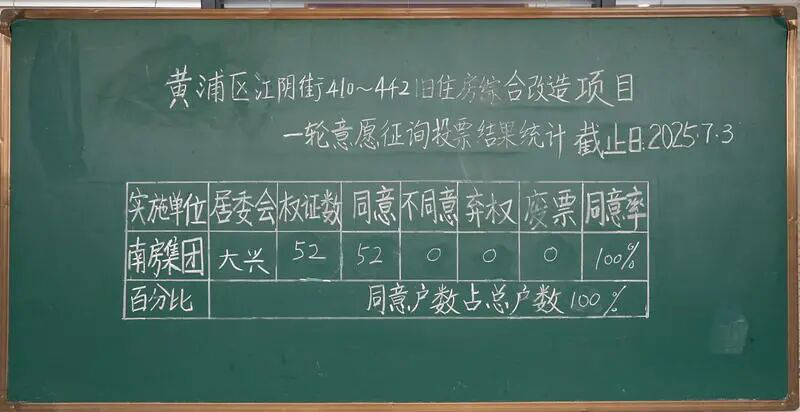 黄浦区江阴街410~442旧住房综合改造项目
一轮意愿征询投票结果统计 截止日:2025.7.3
实施单位 居委会 权证数 同意 不同意 弃权 废票 同意率
南房集团 大兴 52 52 0 0 0 100%
百分比 同意户数占总户数100%